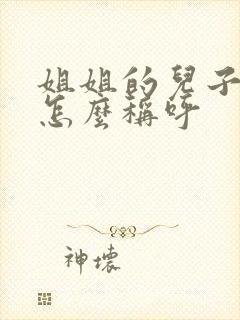 姐姐的兒子
怎麼稱呼
神壞